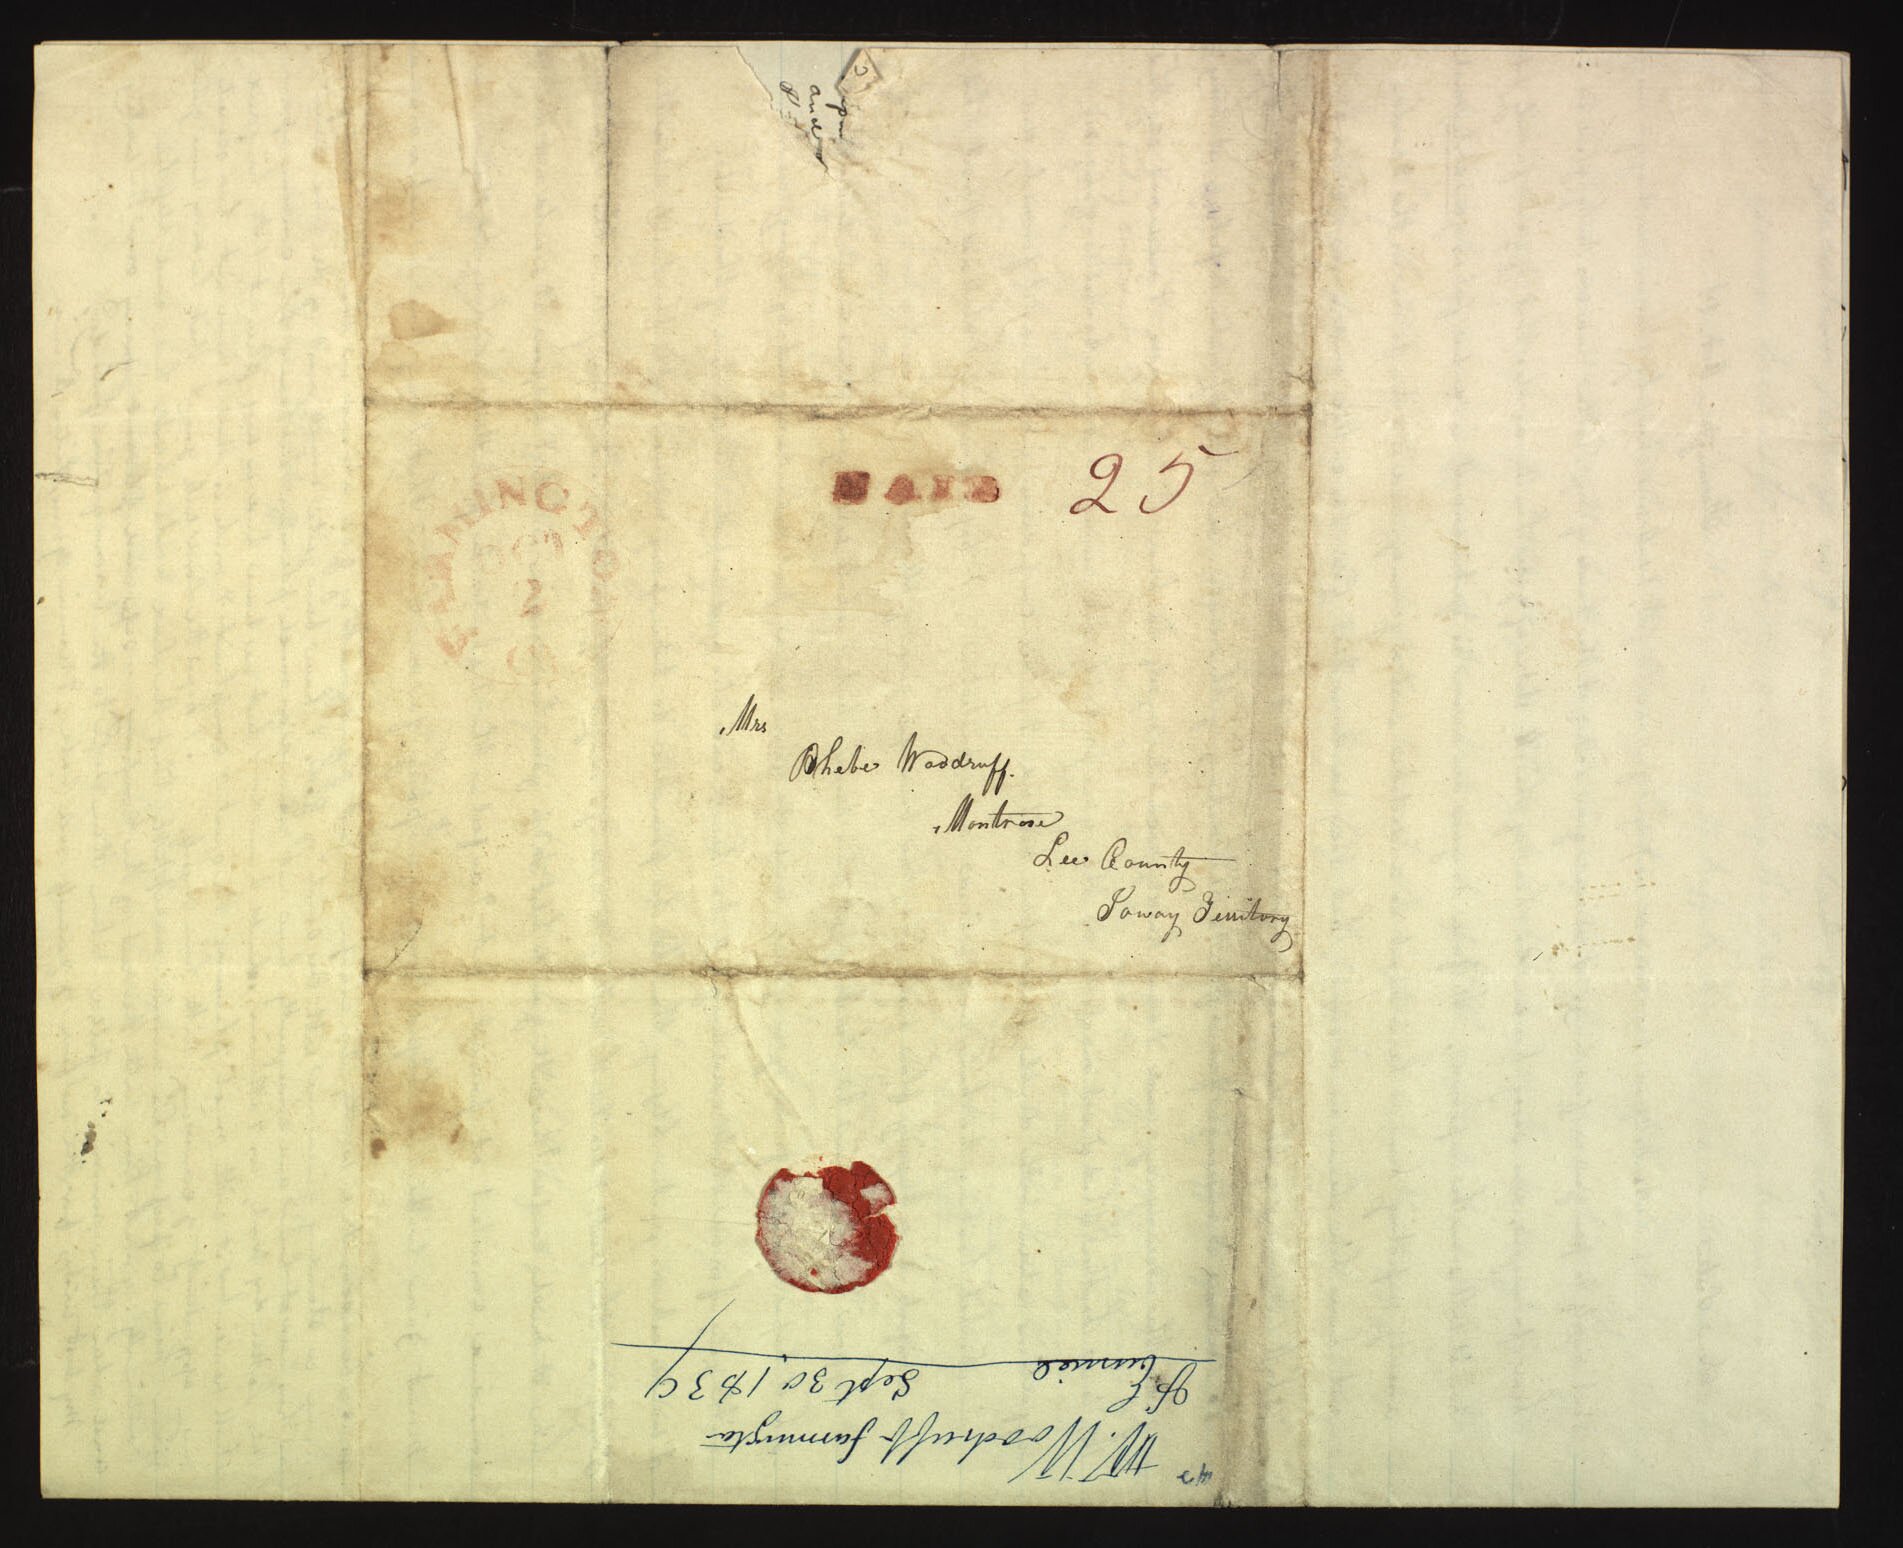 and
FARMINGTON
OCT
2
PAID
25
Mrs
Phebe Woodruff.
Montrose
Lee County
Ioway Territory
W. Woodruff farmington
Sept 30 1839